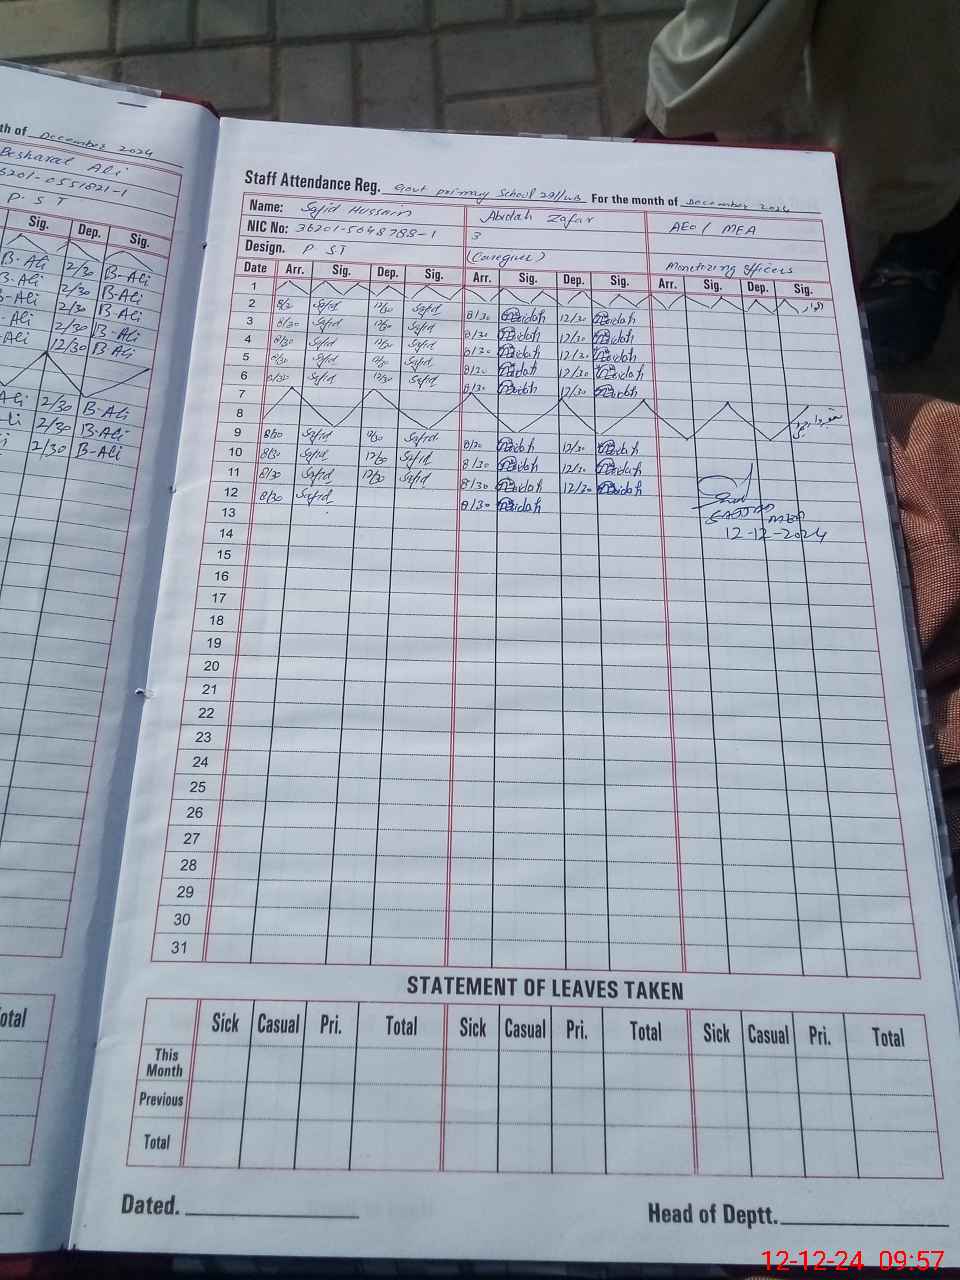 th of December 2024
Besharat Ali
36201-0551821-1
P. S T
Sig. Dep. Sig.
B-Ali 2/30 B-Ali
B-Ali 2/30 B-Ali
B-Ali 2/30 B-Ali
Ali 2/30 B-Ali
Ali 12/30 B-Ali
Ali 2/30 B-Ali
Ali 2/30 B-Ali
2/30 B-Ali
otal
Staff Attendance Reg. Govt primary School For the month of December 2024
Name: Sajid Hussain Abidah Zafar AEO / MEA
NIC No: 36201-5648788-1 3
Design. P ST (Caregiver) Monetizing officers
Date Arr. Sig. Dep. Sig. Arr. Sig. Dep. Sig. Arr. Sig. Dep. Sig.
1 اتوار
2 8/30 Sajid 12/30 Sajid 8/30 Abidah 12/30 Abidah
3 8/30 Sajid 12/30 Sajid 8/30 Abidah 12/30 Abidah
4 8/30 Sajid 12/30 Sajid 8/30 Abidah 12/30 Abidah
5 8/30 Sajid 12/30 Sajid 8/30 Abidah 12/30 Abidah
6 8/30 Sajid 12/30 Sajid 8/30 Abidah 12/30 Abidah
7
8
9 8/30 Sajid 12/30 Sajid 8/30 Abidah 12/30 Abidah
10 8/30 Sajid 12/30 Sajid 8/30 Abidah 12/30 Abidah
11 8/30 Sajid 12/30 Sajid 8/30 Abidah 12/30 Abidah
12 8/30 Sajid 8/30 Abidah
13 MEA
14 12-12-2024
15
16
17
18
19
20
21
22
23
24
25
26
27
28
29
30
31
STATEMENT OF LEAVES TAKEN
Sick Casual Pri. Total Sick Casual Pri. Total Sick Casual Pri. Total
This Month
Previous
Total
Dated. Head of Deptt.
12-12-24 09:57